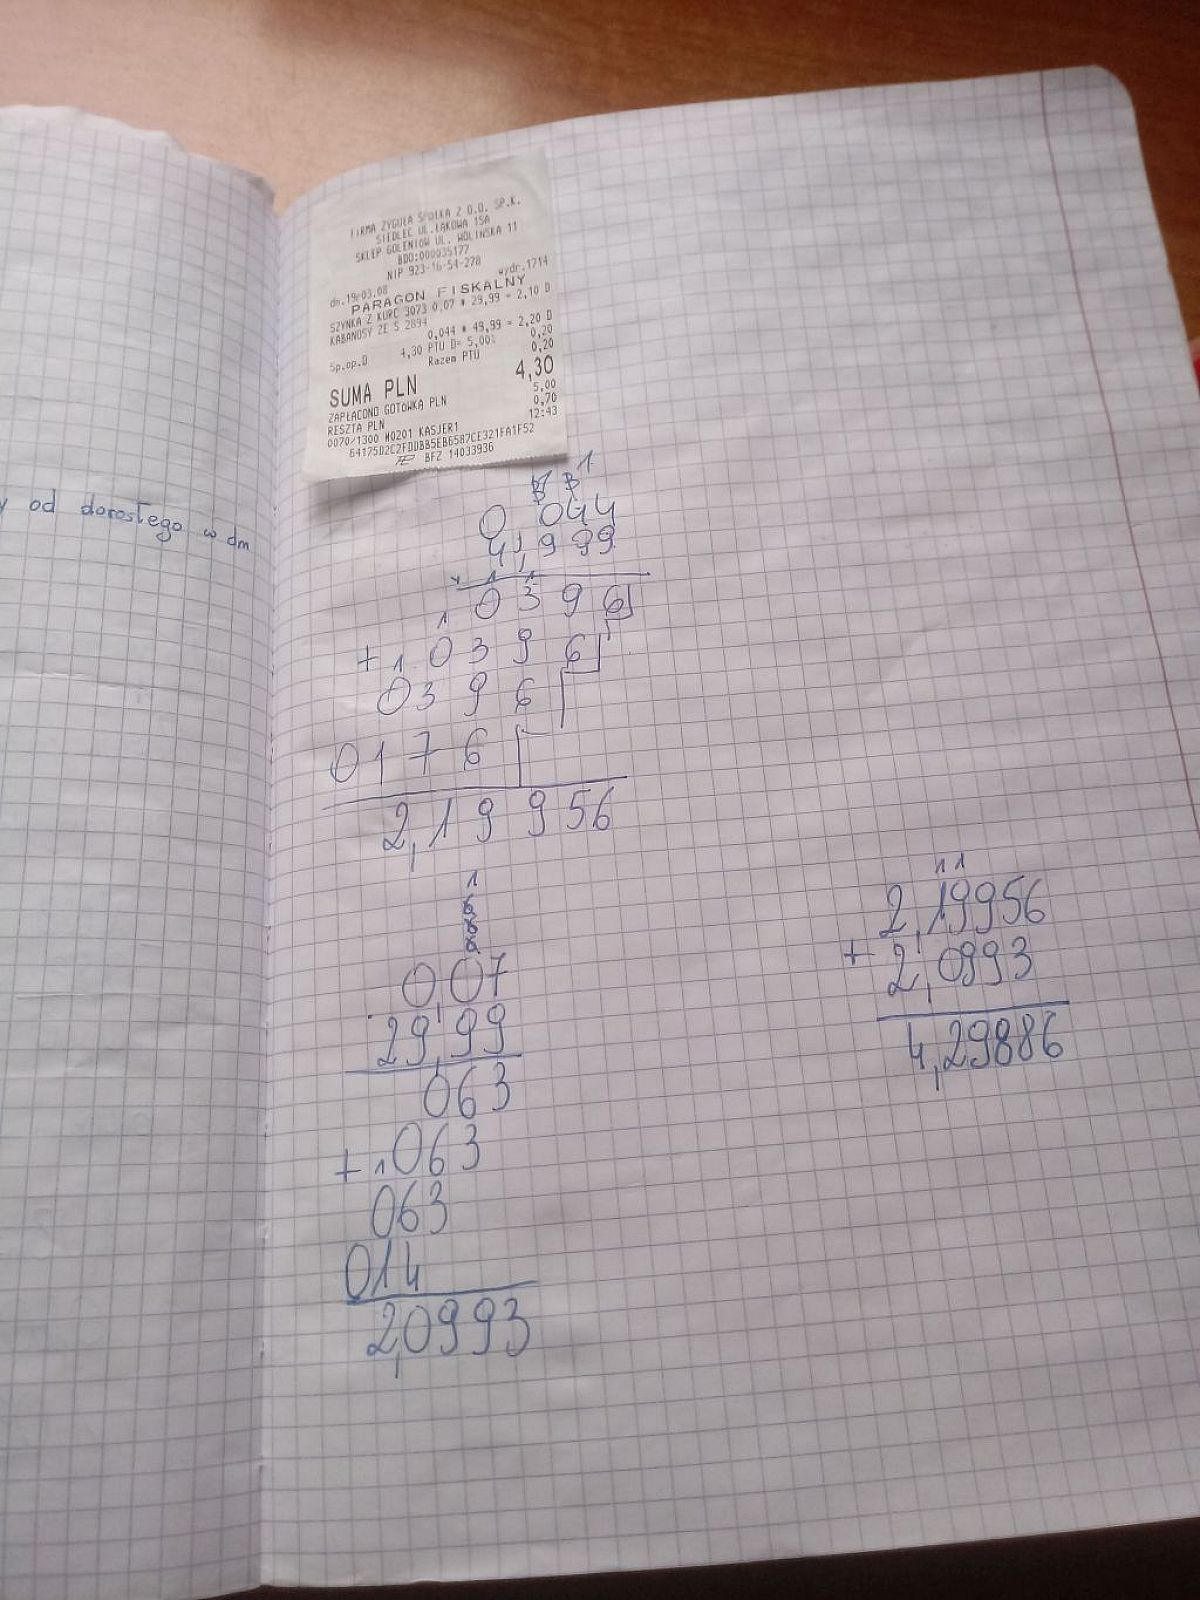 y od dorosłego w dm
FIRMA ZYGUŁA SPÓŁKA Z O.O. SP.K.
SIEDLEC UL.ŁĄKOWA 15A
SKLEP GOLENIÓW UL. WOLIŃSKA 11
BDO:000035177
NIP 923-16-54-278
dn.19r03.08 wydr.1714
PARAGON FISKALNY
SZYNKA Z KURC 3073 0,07 * 29,99 = 2,10 D
KABANOSY ZE S 2894
0,044 * 49,99 = 2,20 D
Sp.op.D 4,30 PTU D= 5,00% 0,20
Razem PTU 0,20
SUMA PLN 4,30
ZAPŁACONO GOTÓWKĄ PLN 5,00
RESZTA PLN 0,70
0070/1300 #0201 KASJER1 12:43
64175D2C2FDDBB5EB6587CE321FA1F52
BFZ 14033936
1
0 044
4,999
1 1
0396
1
+ 1 0396
0396
0176
2,19 956
1
0,07
29,99
063
+ 1063
063
014
2,0993
11
2,19956
+ 2,0993
4,29886